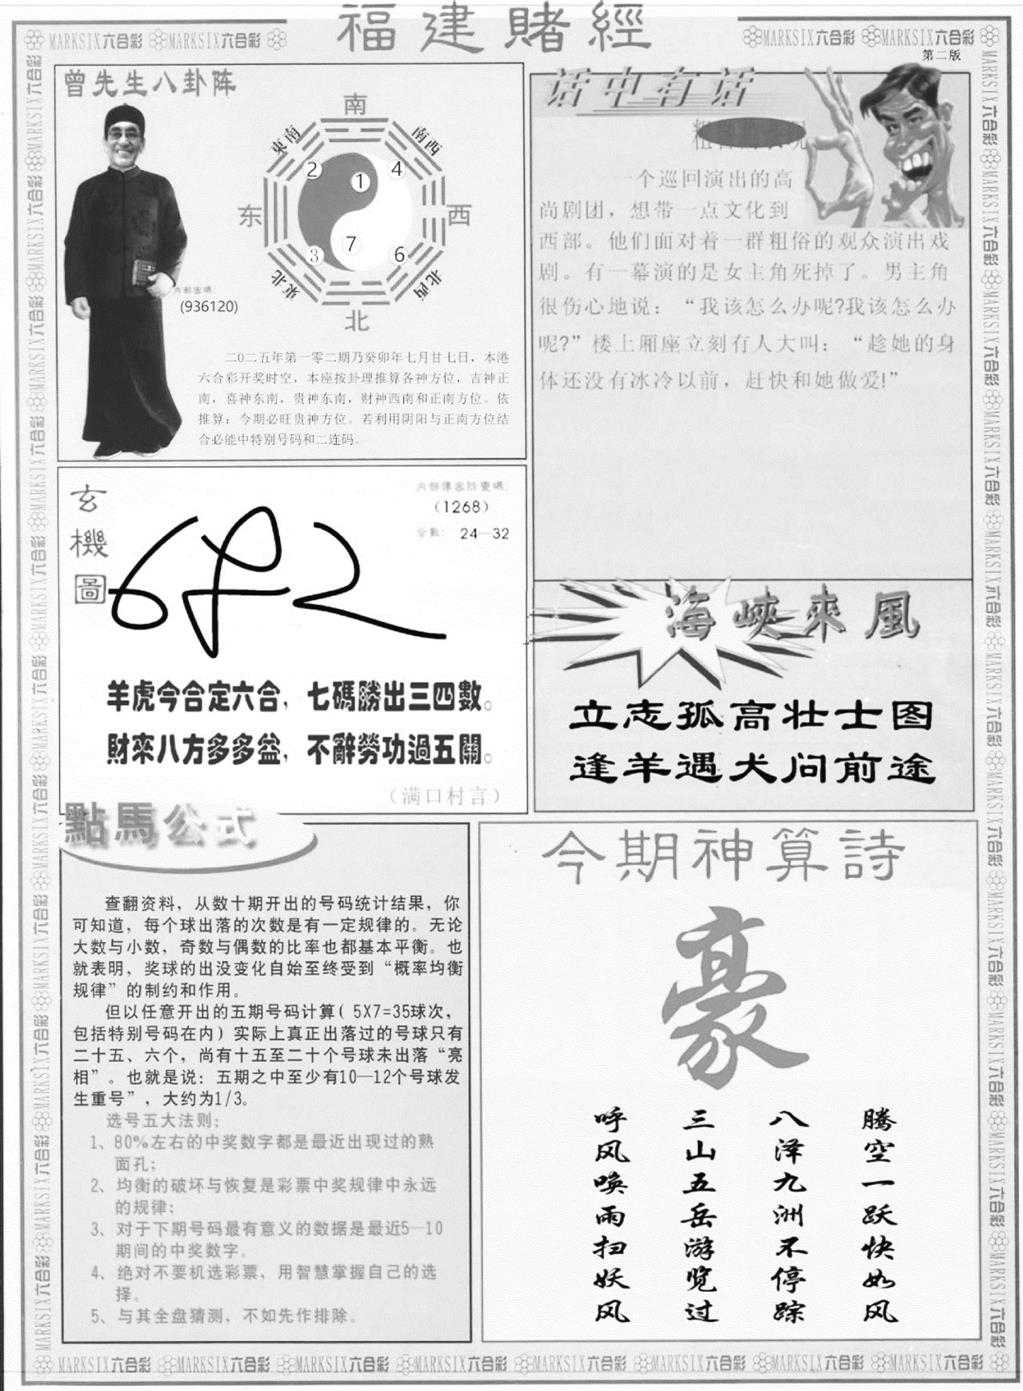 福建賭經
MARKSIX六合彩 MARKSIX六合彩
MARKSIX六合彩 MARKSIX六合彩
第二版
曾先生八卦阵
南
東南
南西
2
1
4
东
西
3
7
6
東北
北西
北
(936120)
二〇二五年第一零二期乃癸卯年七月廿七日，本港
六合彩开奖时空，本座按卦理推算各神方位，吉神正
南，喜神东南，贵神东南，财神西南和正南方位。依
推算：今期必旺贵神方位。若利用阴阳与正南方位结
合必能中特别号码和二连码。
话中有话
一个巡回演出的高
尚剧团，想带一点文化到
西部。他们面对着一群粗俗的观众演出戏
剧。有一幕演的是女主角死掉了。男主角
很伤心地说：“我该怎么办呢?我该怎么办
呢?”楼上厢座立刻有人大叫：“趁她的身
体还没有冰冷以前，赶快和她做爱!”
玄機圖
（1268）
24—32
羊虎今合定六合，七碼勝出三四數。
財來八方多多益，不辭勞功過五關。
（满口村言）
海峽來風
立志孤高壮士图
逢羊遇犬问前途
點馬公式
查翻资料，从数十期开出的号码统计结果，你
可知道，每个球出落的次数是有一定规律的。无论
大数与小数，奇数与偶数的比率也都基本平衡。也
就表明，奖球的出没变化自始至终受到“概率均衡
规律”的制约和作用。
但以任意开出的五期号码计算（5X7=35球次，
包括特别号码在内）实际上真正出落过的号球只有
二十五、六个，尚有十五至二十个号球未出落“亮
相”。也就是说：五期之中至少有10—12个号球发
生重号”，大约为1/3。
选号五大法则：
1、80%左右的中奖数字都是最近出现过的熟
面孔；
2、均衡的破坏与恢复是彩票中奖规律中永远
的规律；
3、对于下期号码最有意义的数据是最近5—10
期间的中奖数字。
4、绝对不要机选彩票，用智慧掌握自己的选
择。
5、与其全盘猜测，不如先作排除。
今期神算詩
豪
腾空一跃快如风
八泽九洲不停踪
三山五岳游览过
呼风唤雨扫妖风